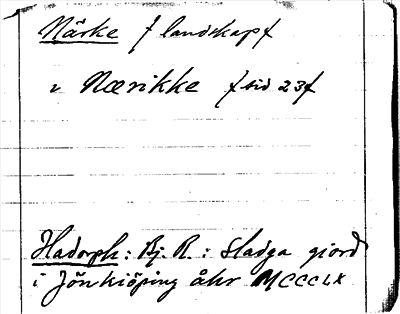 Närke / landskap /
i Nærikke / sid 23 /
Hadorph: Bj. R.: Stadga giord
i Jönkiöping åhr MCCCLX